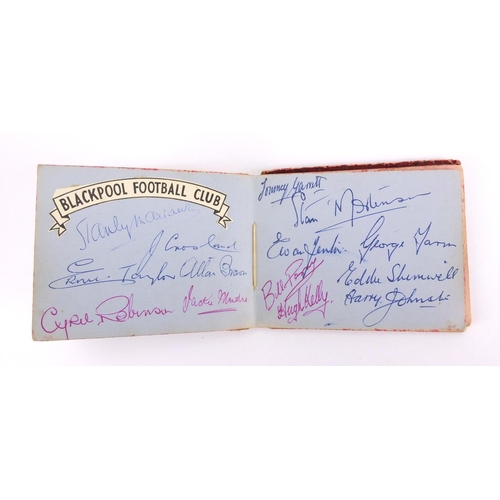 BLACKPOOL FOOTBALL CLUB
Stanley Matthews
J Crosland
Ernie Taylor Allan Brown
Cyril Robinson Jackie Mudie
Tommy Garrett
Stan Mortensen
Ewan Fenton George Farm
Bill Perry Eddie Shimwell
Hugh Kelly Harry Johnston